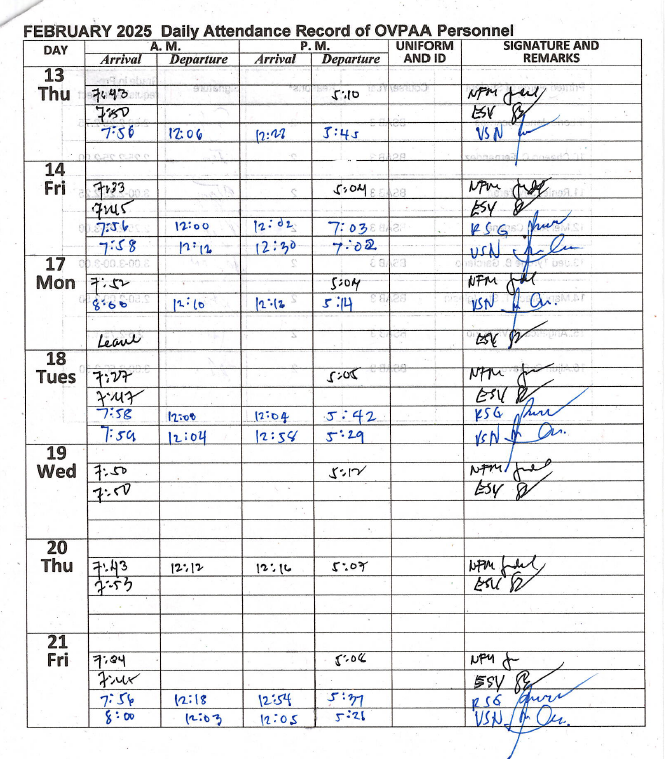 FEBRUARY 2025 Daily Attendance Record of OVPAA Personnel
DAY A. M. P. M. UNIFORM AND ID SIGNATURE AND REMARKS
Arrival Departure Arrival Departure
13 Thu
7:43 5:10 NFM
7:50 ESV
7:56 12:06 5:45 VSN
14 Fri
7:33 5:04 NFM
7:45 ESV
7:56 12:00 12:02 7:03 RSG
7:58 12:12 12:30 7:02 VSN
17 Mon
7:52 5:04 NFM
8:00 12:10 12:12 5:14 VSN
Leave ESV
18 Tues
7:27 5:05 NFM
7:47 ESV
7:58 12:00 12:04 5:42 RSG
7:59 12:04 12:58 5:29 VSN
19 Wed
7:50 5:12 NFM
7:50 ESV
20 Thu
7:43 12:12 12:16 5:07 NFM
7:53 ESV
21 Fri
5:06 NFM
ESV
7:56 12:18 12:54 5:37 RSG
8:00 12:03 12:05 5:26 VSN